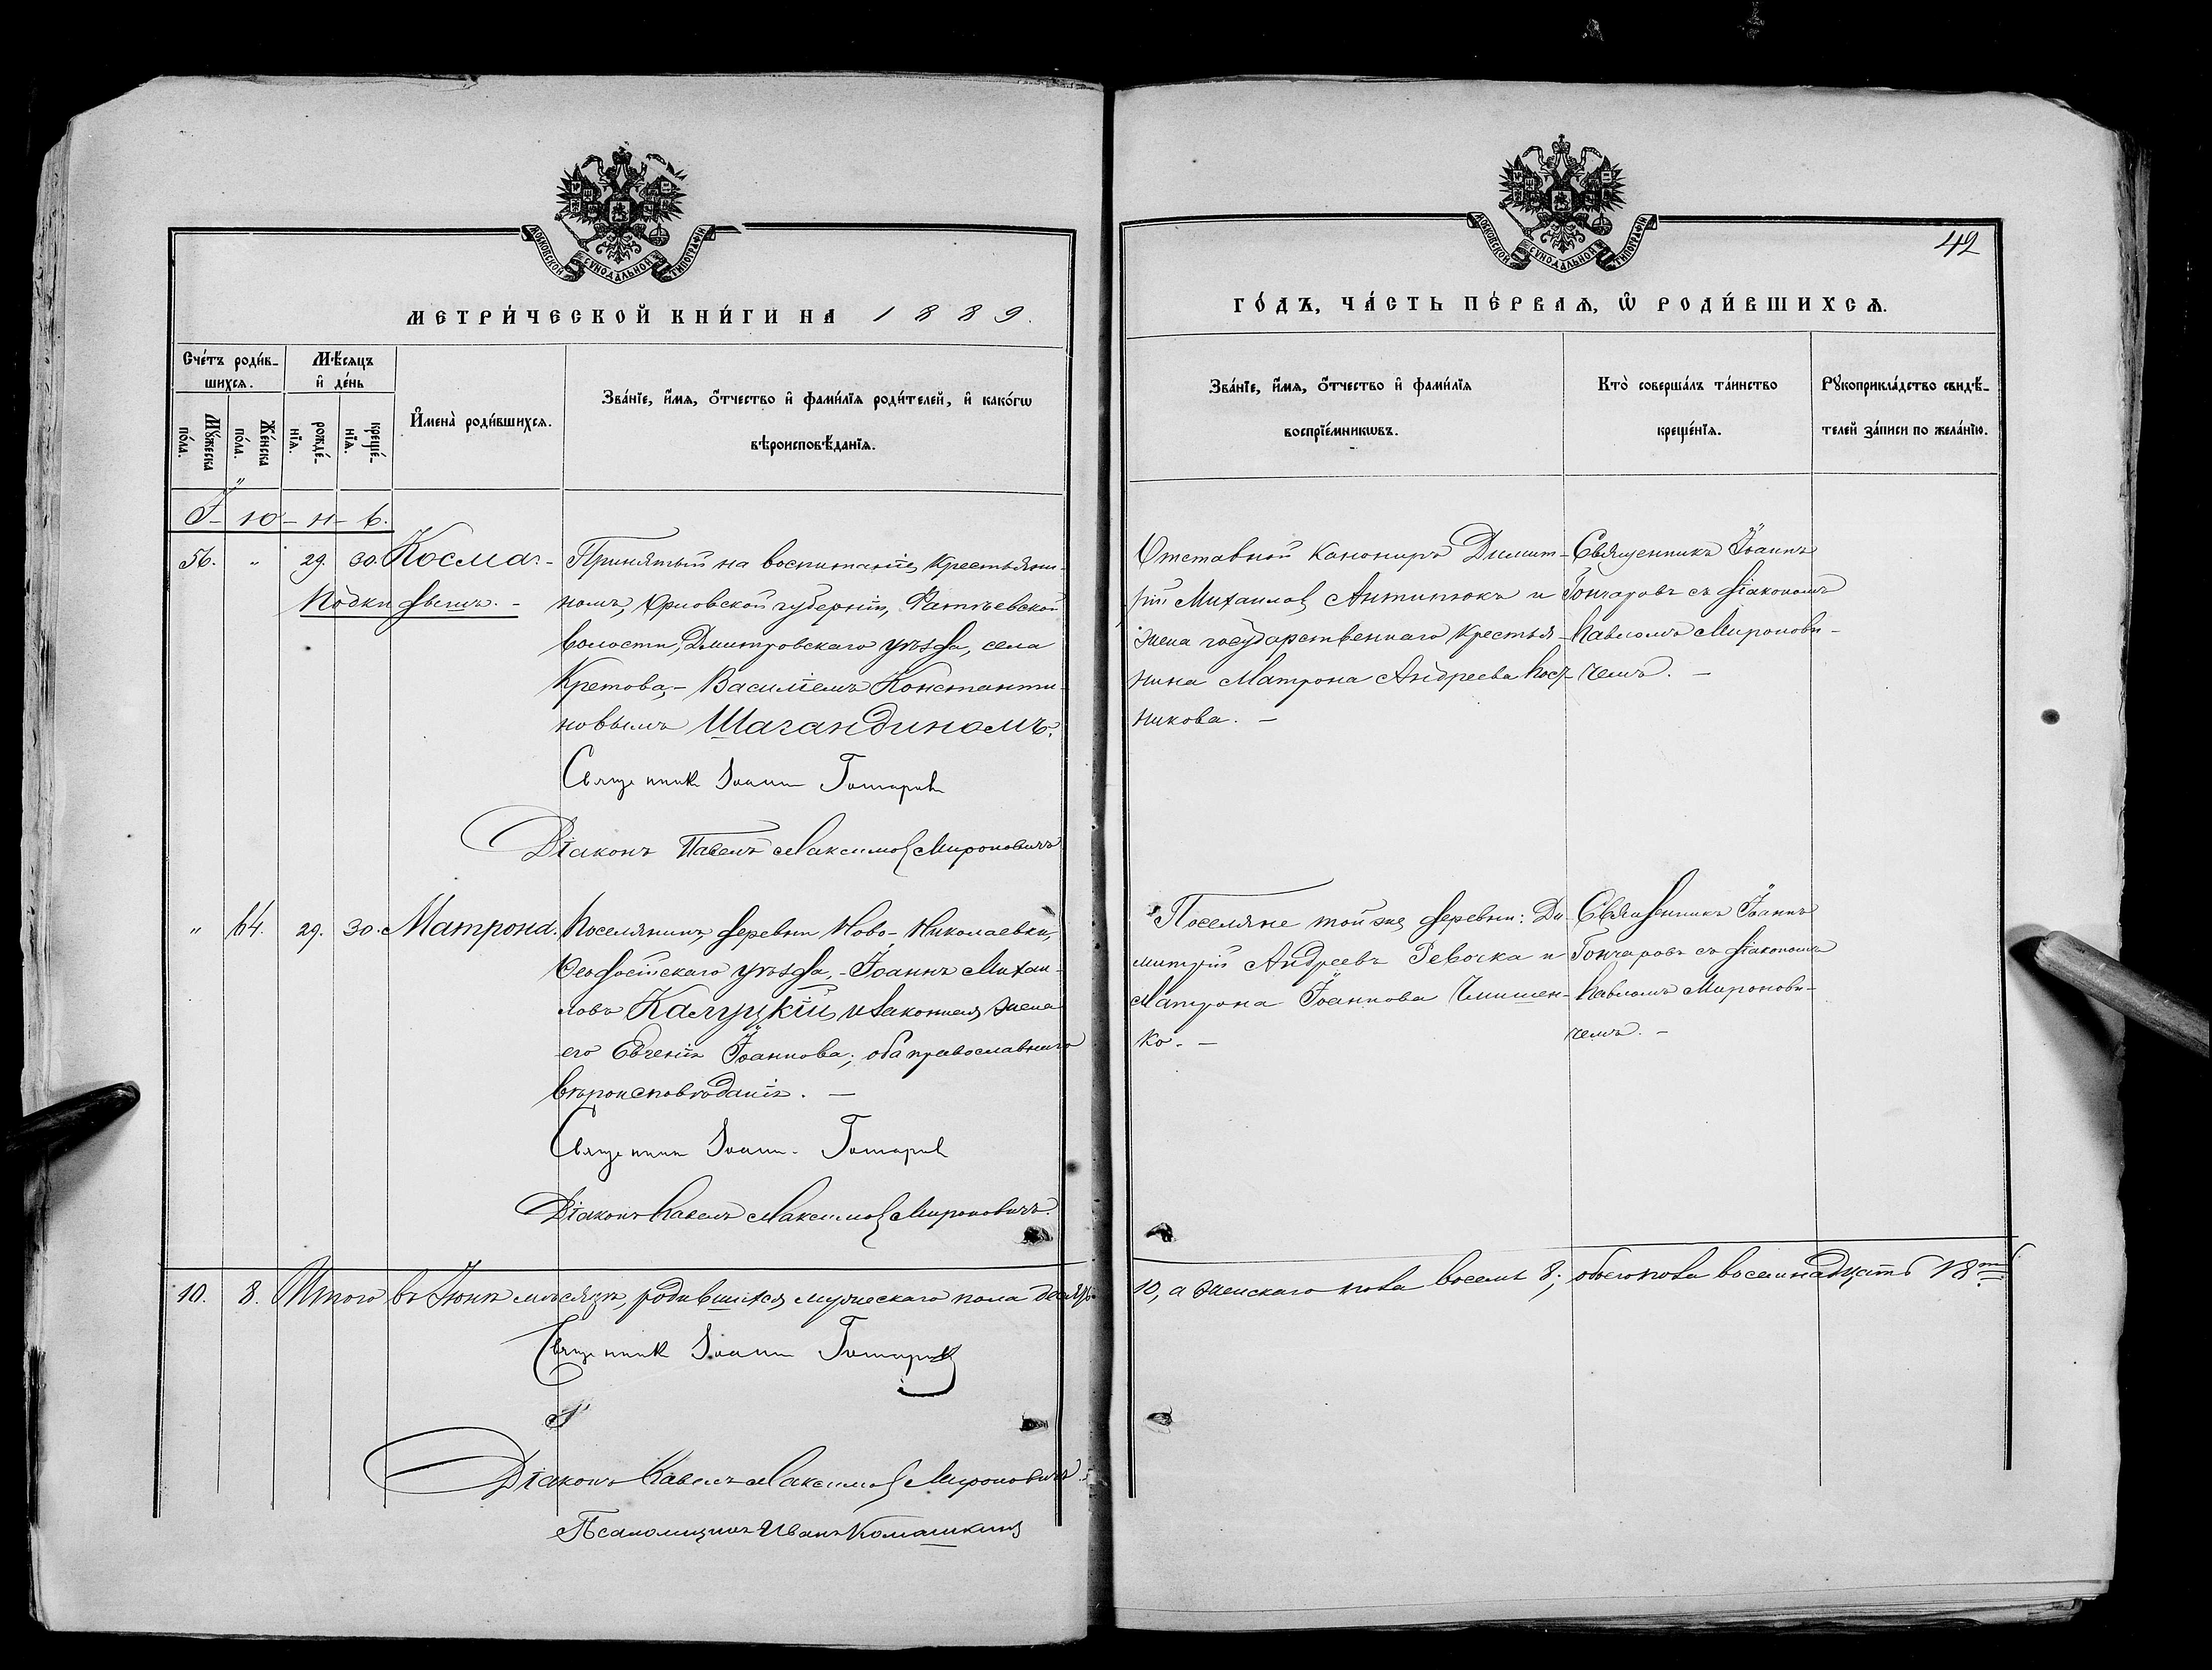 МОСКОВСКОЙ СѴНОДАЛЬНОЙ ТИПОГРАФІИ
МЕТРИ́ЧЕСКОЙ КНИ́ГИ НА 1889.
Сче́тъ роди́в-
шихсѧ.
Мѣ́сѧцъ
и҆ де́нь
Мꙋ́жеска по́ла.
Же́нска по́ла.
рожде́-
нїѧ.
креще́-
нїѧ.
И҆мена̀ роди́вшихсѧ.
Зва́нїе, и҆́мѧ, ѻ҆́тчество и҆ фами́лїѧ роди́телей, и҆ како́гѡ
вѣроисповѣ́данїѧ.
10 - 11 - 6.
56. " 29. 30. Косма. - Принятый на воспитаніе крестьяни-
Подкидышъ. - номъ, Орловской губерніи,
волости, Дмитровскаго уѣзда, села
Кретова, - Василіемъ Константи-
новымъ Шагандиномъ.
Священникъ Іоаннъ Гончаровъ
Діаконъ Павелъ Максимовъ Мироновичъ
" 64. 29. 30. Матрона. Поселянинъ деревни Ново-Николаевки,
Ѳеодосійскаго уѣзда, - Іоаннъ Михаи-
ловъ Калуцкій и законная жена
его Евгенія Іоаннова; оба православнаго
вѣроисповѣданія. -
Священникъ Іоаннъ Гончаровъ
Діаконъ Павелъ Максимовъ Мироновичъ.
10. 8. Итого въ Іюнѣ мѣсяцѣ, родившихся мужескаго пола десять
Священникъ Іоаннъ Гончаровъ
Діаконъ Павелъ Максимовъ Мироновичъ.
Псаломщикъ Иванъ Комашкинъ
МОСКОВСКОЙ СѴНОДАЛЬНОЙ ТИПОГРАФІИ
42
ГО́ДЪ, ЧА́СТЬ ПЕ́РВАѦ, Ѡ҆ РОДИ́ВШИХСѦ.
Зва́нїе, и҆́мѧ, ѻ҆́тчество и҆ фами́лїѧ
воспрїе́мникѡвъ.
Кто̀ соверша́лъ та́инство
креще́нїѧ.
Рꙋкоприкла́дство свидѣ́-
телей за́писи по жела́нїю.
Отставной канониръ Димит-
рій Михаиловъ Антипюкъ и
жена государственнаго крестья-
нина Матрона Андреева
никова. -
Священникъ Іоаннъ
Гончаровъ съ діакономъ
Павломъ Миронови-
чемъ. -
Поселяне той же деревни: Ди-
митрій Андреевъ Ревочка и
Матрона Іоаннова
ко. -
Священникъ Іоаннъ
Гончаровъ съ діакономъ
Павломъ Миронови-
чемъ. -
10, а женскаго пола восемь 8; обоего пола восемнадцать 18.